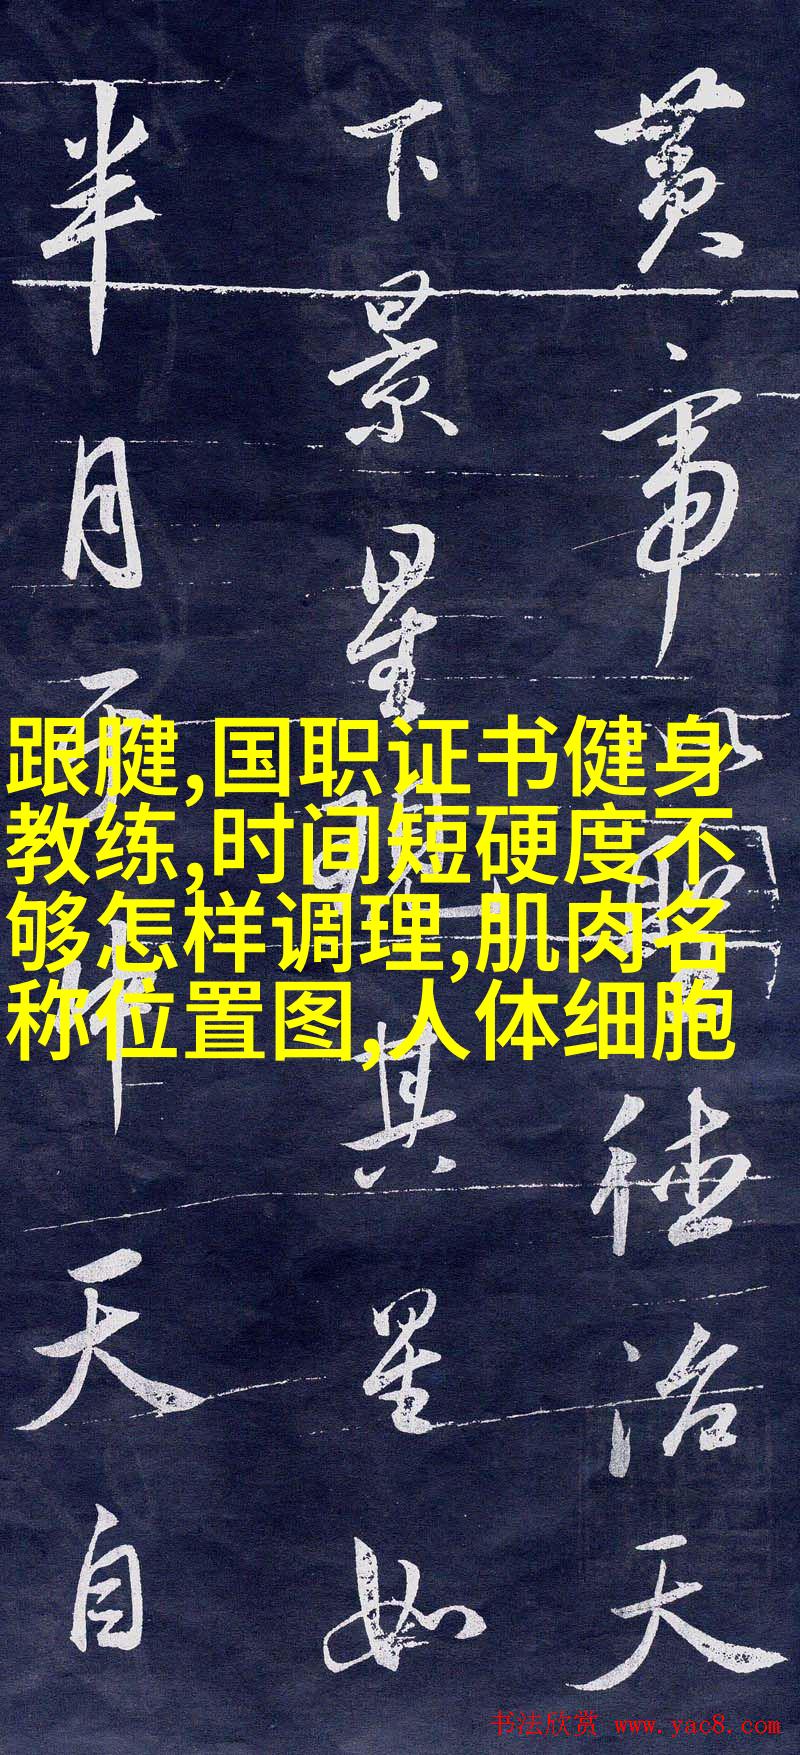 黄帝以聖德治天
下景星現其星如
半月于中天自
跟腱,国职证书健身
教练,时间短硬度不
够怎样调理,肌肉名
称位置图,人体细胞
书法欣赏 www.yac8.com